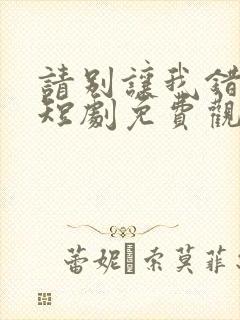 請別讓我錯
短劇免費觀
蕾妮 索莫菲